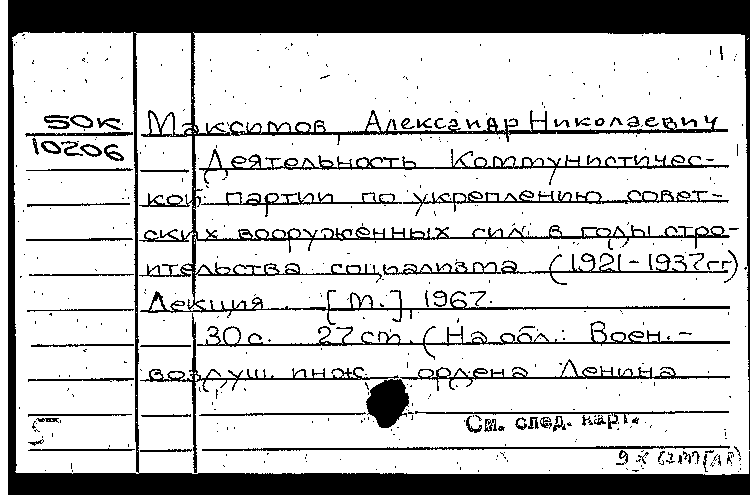 1
50К Максимов, Александр Николаевич
10206 Деятельность Коммунистичес-
кой партии по укреплению совет-
ских вооружённых сил в годы стро-
ительства социализма (1921-1937гг)
Лекция. [М.], 1967.
30с. 27см. (На обл.: Воен.-
воздуш. инж. ордена Ленина
См. след. карт.